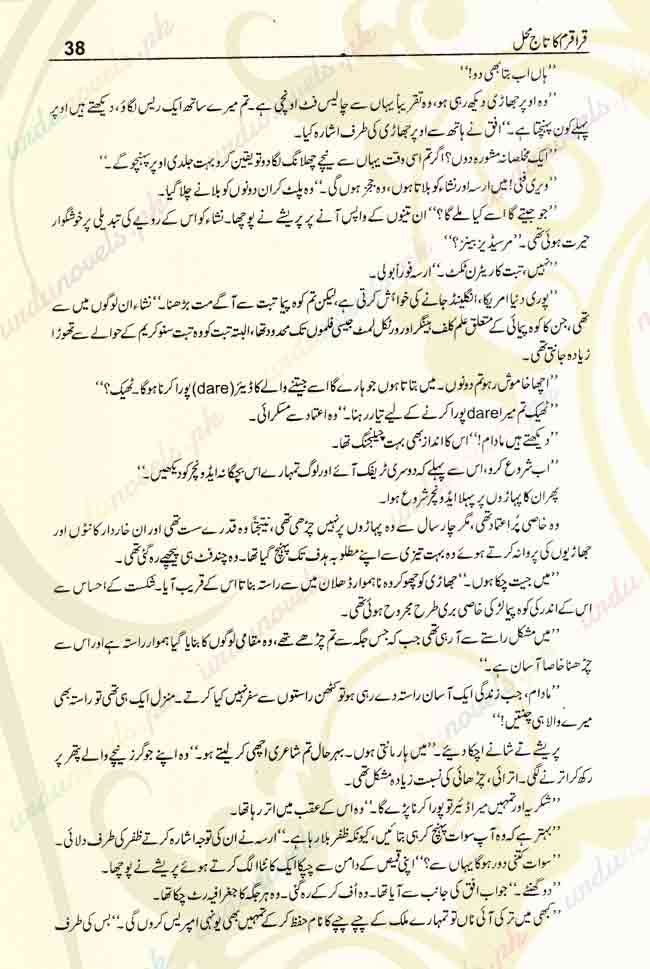 قراقرم کا تاج محل
38
’’ہاں اب بتا بھی دو!‘‘
’’وہ اوپر جھاڑی دیکھ رہی ہو، وہ تقریباً یہاں سے چالیس فٹ اونچی ہے۔ تم میرے ساتھ ایک ریس لگاؤ، دیکھتے ہیں اوپر
پہلے کون پہنچتا ہے۔‘‘ افق نے ہاتھ سے اوپر جھاڑی کی طرف اشارہ کیا۔
’’ایک مخلصانہ مشورہ دوں؟ اگر تم اسی وقت یہاں سے نیچے چھلانگ لگا دو تو یقین کرو بہت جلدی اوپر پہنچو گے۔‘‘
’’ویری فنی! میں ارسہ اور نشاء کو بلاتا ہوں، وہ ججز ہوں گی۔‘‘ وہ پلٹ کر ان دونوں کو بلانے چلا گیا۔
’’جو جیتے گا اسے کیا ملے گا؟‘‘ ان تینوں کے واپس آنے پر پریشے نے پوچھا۔ نشاء کو اس کے رویے کی تبدیلی پر خوشگوار
حیرت ہوئی تھی۔ ’’مرسیڈیز بینز؟‘‘
’’نہیں، تبت کا ریٹرن ٹکٹ۔‘‘ ارسہ فوراً بولی۔
’’پوری دنیا امریکا، انگلینڈ جانے کی خواہش کرتی ہے، لیکن تم کوہ پیما تبت سے آگے مت بڑھنا۔‘‘ نشاء ان لوگوں میں سے
تھی، جن کا کوہ پیمائی کے متعلق علم کلف ہینگر اور ورٹیکل لمٹ جیسی فلموں تک محدود تھا، البتہ تبت کو وہ تبت سنو کریم کے حوالے سے تھوڑا
زیادہ جانتی تھی۔
’’اچھا خاموش رہو تم دونوں۔ میں بتاتا ہوں جو ہارے گا اسے جیتنے والے کا ڈیئر (dare) پورا کرنا ہوگا۔ ٹھیک؟‘‘
’’ٹھیک تم میرا dare پورا کرنے کے لیے تیار رہنا۔‘‘ وہ اعتماد سے مسکرائی۔
’’دیکھتے ہیں مادام!‘‘ اس کا انداز بھی بہت چیلنجنگ تھا۔
’’اب شروع کرو، اس سے پہلے کہ دوسری ٹریفک آئے اور لوگ تمہارے اس بچگانہ ایڈونچر کو دیکھیں۔‘‘
پھر ان کا پہاڑوں پر پہلا ایڈونچر شروع ہوا۔
وہ خاصی پُراعتماد تھی، مگر چار سال سے وہ پہاڑوں پر نہیں چڑھی تھی، نتیجتاً وہ قدرے ست تھی اور ان خاردار کانٹوں اور
جھاڑیوں کی پروا نہ کرتے ہوئے وہ بہت تیزی سے اپنے مطلوبہ ہدف تک پہنچ گیا تھا۔ وہ چند فٹ ہی پیچھے رہ گئی تھی۔
’’میں جیت چکا ہوں۔‘‘ جھاڑی کو چھو کر وہ ناہموار ڈھلان میں سے راستہ بناتا اس کے قریب آیا۔ شکست کے احساس سے
اس کے اندر کی کوہ پیما لڑکی خاصی بری طرح مجروح ہوئی تھی۔
’’میں مشکل راستے سے آ رہی تھی جب کہ جس جگہ سے تم چڑھے تھے، وہ مقامی لوگوں کا بنایا گیا ہموار راستہ ہے اور اس سے
چڑھنا خاصا آسان ہے۔‘‘
’’مادام، جب زندگی ایک آسان راستہ دے رہی ہو تو کٹھن راستوں سے سفر نہیں کیا کرتے۔ منزل ایک ہی تھی تو راستہ بھی
میرے والا ہی چنتیں!‘‘
پریشے نے شانے اچکا دیئے۔ ’’میں ہار مانتی ہوں۔ بہرحال تم شاعری اچھی کر لیتے ہو۔‘‘ وہ اپنے جوگرز نیچے والے پتھر پر
رکھ کر اترنے لگی۔ اترائی، چڑھائی کی نسبت زیادہ مشکل تھی۔
’’شکریہ اور تمہیں میرا ڈئیر تو پورا کرنا پڑے گا۔‘‘ وہ اس کے عقب میں اتر رہا تھا۔
’’بہتر ہے کہ وہ آپ سوات پہنچ کر ہی بتائیں، کیونکہ ظفر بلا رہا ہے۔‘‘ ارسہ نے ان کی توجہ اشارہ کرتے ظفر کی طرف دلائی۔
’’سوات کتنی دور ہوگا یہاں سے؟‘‘ اپنی قمیص کے دامن سے چپکا ایک کانٹا الگ کرتے ہوئے پریشے نے پوچھا۔
’’دو گھنٹے۔‘‘ جواب افق کی جانب سے آیا تھا۔ وہ اُف کر کے رہ گئی۔ وہ ہر جگہ کا جغرافیہ رٹ چکا تھا۔
’’کبھی میں ترکی آئی ناں تو تمہارے ملک کے چپے چپے کا نام حفظ کر کے تمہیں بھی یونہی امپریس کروں گی۔‘‘ بس کی طرف
urdunovels.pk